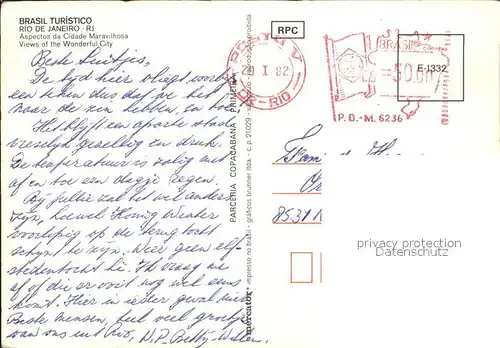 BRASIL TURÍSTICO
RIO DE JANEIRO - RJ
Aspectos da Cidade Maravilhosa
Views of the Wonderful City
Beste
De tijd hier vliegt voorbij
een teken dus dat we het
naar de zin hebben, en hoe
Het blijft een aparte stad
vreselijk gezellig en druk.
De temperatuur is zalig met
af en toe een dagje regen.
Bij jullie zal het wel anders
zijn, hoewel Koning Winter
voorlopig op de terugtocht
schijnt te zijn. Weer geen elf-
stedentocht hè. Ik vraag me
af of die er ooit nog wel eens
komt. Hier in ieder geval niet
Beste mensen, heel veel groetjes
van ons uit Rio,
PARCERIA COPACABANA - PRIMEIRA
mercator impresso no brasil - gráficos brunner ltda. - c.p. 21029 -
proibida
RPC
29 I 82
RIO
BRASIL
CORREIO
P.B.-M. 6236
E-1332
Fam
8531
privacy protection
Datenschutz